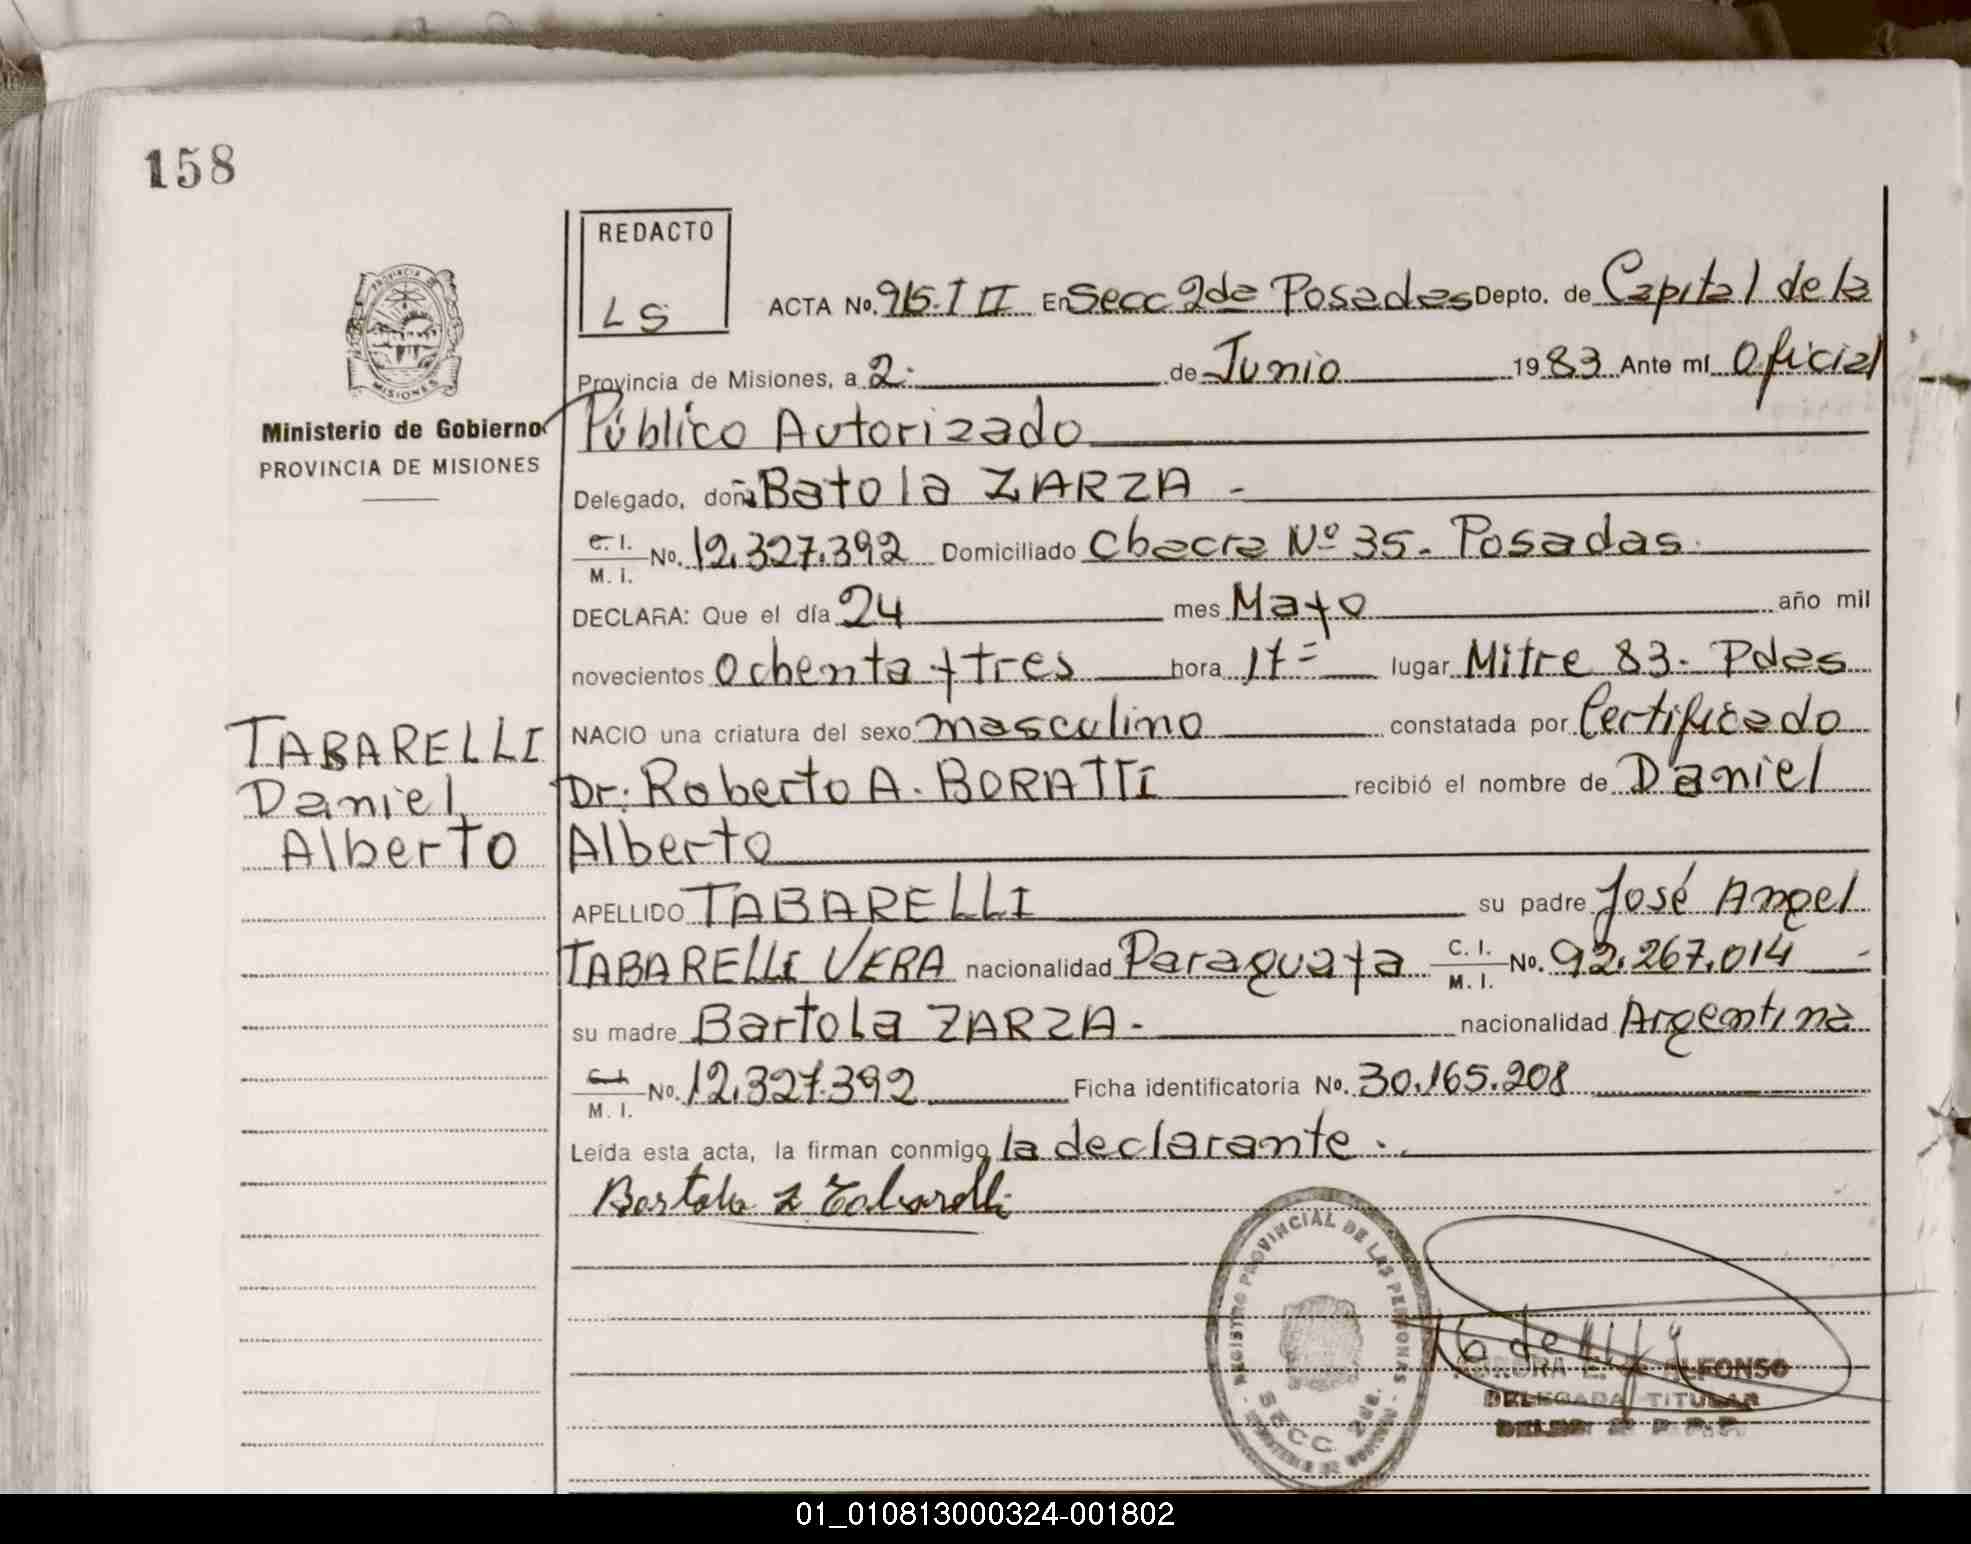 158
REDACTO
LS
ACTA No. 915.T II En Secc 2da Posadas Depto. de Capital de la
Provincia de Misiones, a 2. de Junio 1983 Ante mí Oficial
Ministerio de Gobierno
PROVINCIA DE MISIONES
Público Autorizado
Delegado, doña Batola ZARZA -
C. I. M. I. No. 12.327.392 Domiciliado Chacra Nº 35. Posadas.
DECLARA: Que el día 24 mes Mayo año mil
novecientos ochenta y tres hora 17= lugar Mitre 83. Pdas
NACIO una criatura del sexo masculino constatada por Certificado
Dr. Roberto A. BORATTI recibió el nombre de Daniel
Alberto
TABARELLI
Daniel
Alberto
APELLIDO TABARELLI su padre José Angel
TABARELLI VERA nacionalidad Paraguaya C. I. M. I. No. 92.267.014 -
su madre Bartola ZARZA. nacionalidad Argentina
C. I. M. I. No. 12.327.392 Ficha identificatoria No. 30.165.208
Leída esta acta, la firman conmigo la declarante.
Bartola Z Tabarelli
PROVINCIA DE
MISIONES
REGISTRO PROVINCIAL DE LAS PERSONAS
SECC. 2da.
ALFONSO
DELEGADA TITULAR
01_010813000324-001802